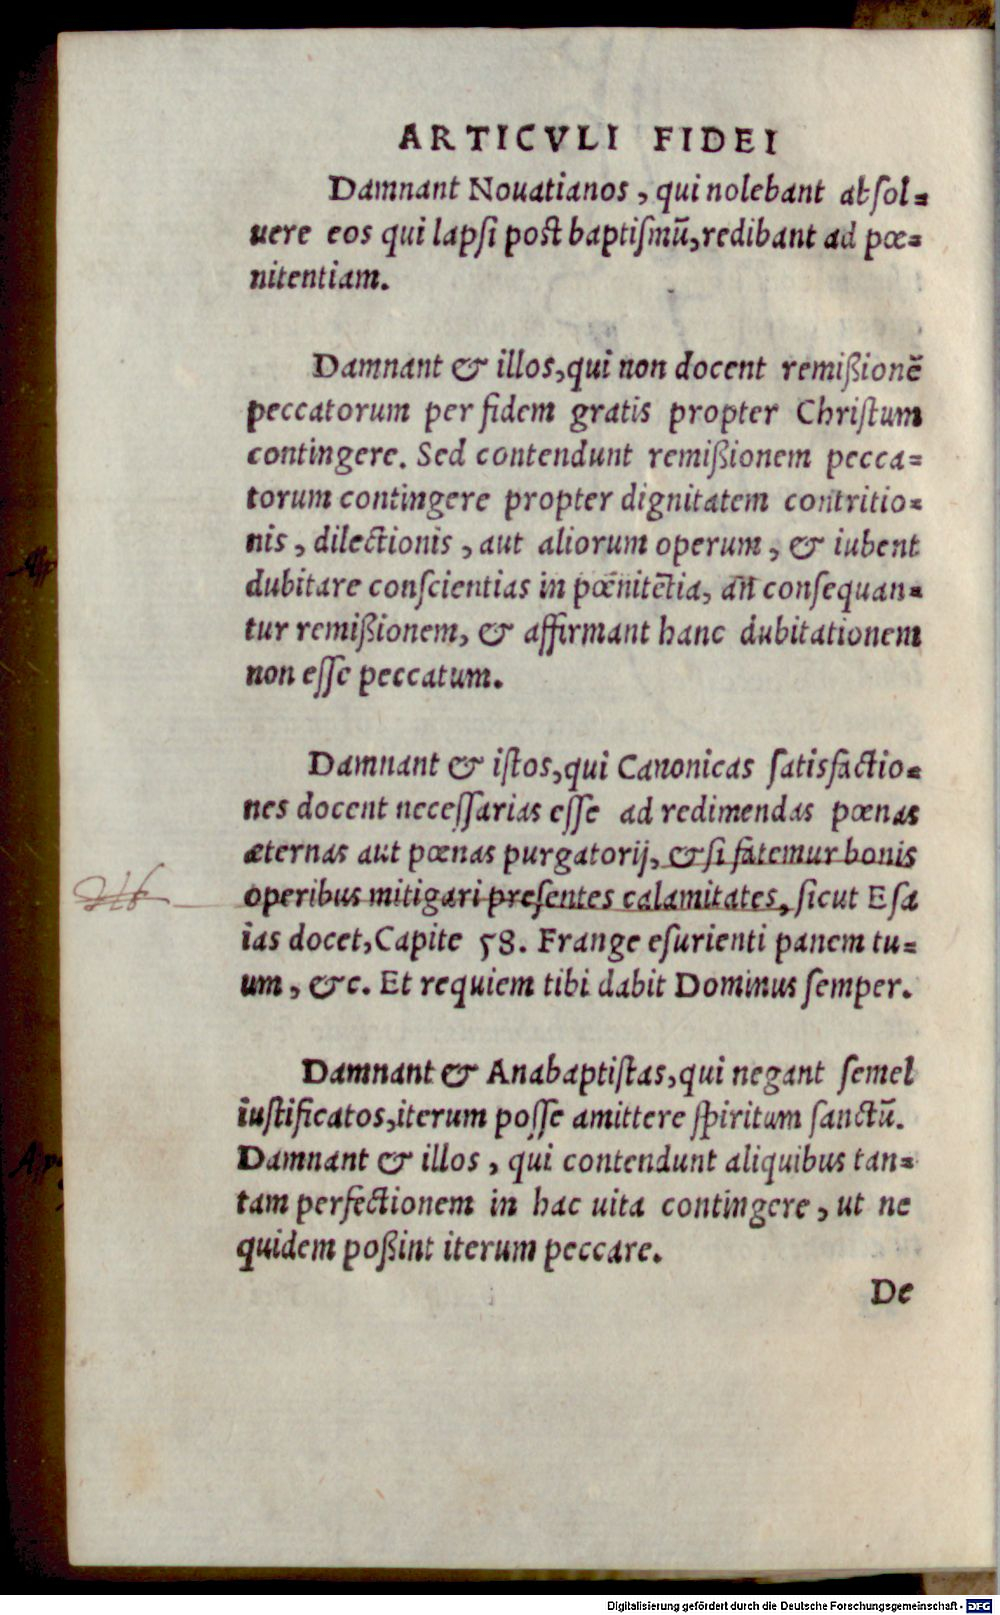 ARTICVLI FIDEI
Damnant Nouatianos, qui nolebant absol=
uere eos qui lapsi post baptismū, redibant ad pœ=
nitentiam.
Damnant & illos, qui non docent remißionē
peccatorum per fidem gratis propter Christum
contingere. Sed contendunt remißionem pecca=
torum contingere propter dignitatem contritio=
nis, dilectionis, aut aliorum operum, & iubent
dubitare conscientias in pœnitētia, an consequan=
tur remißionem, & affirmant hanc dubitationem
non esse peccatum.
Damnant & istos, qui Canonicas satisfactio=
nes docent necessarias esse ad redimendas pœnas
æternas aut pœnas purgatorij, & si fatemur bonis
operibus mitigari presentes calamitates, sicut Esa
ias docet, Capite 58. Frange esurienti panem tu=
um, &c. Et requiem tibi dabit Dominus semper.
Damnant & Anabaptistas, qui negant semel
iustificatos, iterum posse amittere spiritum sanctū.
Damnant & illos, qui contendunt aliquibus tan=
tam perfectionem in hac uita contingere, ut ne
quidem poßint iterum peccare.
De
Digitalisierung gefördert durch die Deutsche Forschungsgemeinschaft - DFG